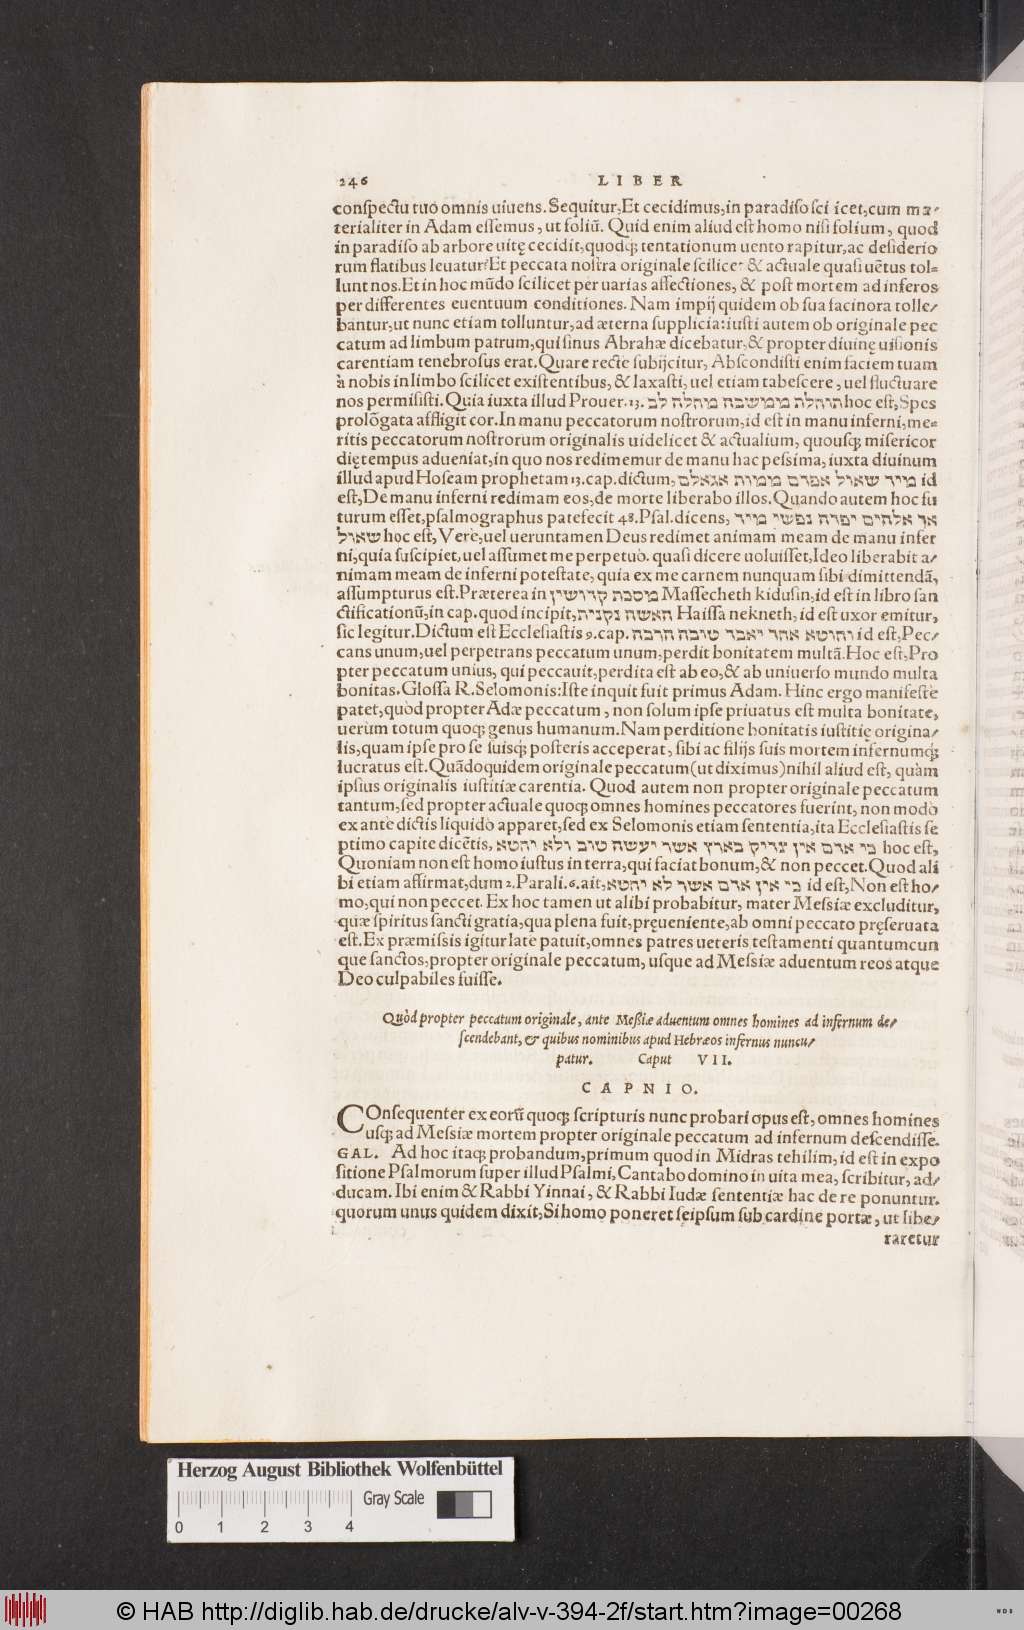 246 LIBER
conspectu tuo omnis uiuens. Sequitur, Et cecidimus, in paradiso sci icet, cum ma-
terialiter in Adam essemus, ut foliũ. Quid enim aliud est homo nisi folium, quod
in paradiso ab arbore uitę cecidit, quodq; tentationum uento rapitur, ac desiderio
rum flatibus leuatur? Et peccata nostra originale scilicet & actuale quasi uẽtus tol=
lunt nos. Et in hoc mũdo scilicet per uarias affectiones, & post mortem ad inferos
per differentes euentuum conditiones. Nam impij quidem ob sua facinora tolle-
bantur, ut nunc etiam tolluntur, ad æterna supplicia: iusti autem ob originale pec
catum ad limbum patrum, qui sinus Abrahæ dicebatur, & propter diuinę uisionis
carentiam tenebrosus erat. Quare recte subijcitur, Abscondisti enim faciem tuam
à nobis in limbo scilicet existentibus, & laxasti, uel etiam tabescere, uel fluctuare
nos permisisti. Quia iuxta illud Prouer. 13. תוחלת ממושכה מחלה לב hoc est, Spes
prolõgata affligit cor. In manu peccatorum nostrorum, id est in manu inferni, me=
ritis peccatorum nostrorum originalis uidelicet & actualium, quousq; misericor
dię tempus adueniat, in quo nos redimemur de manu hac pessima, iuxta diuinum
illud apud Hoseam prophetam 13. cap. dictum, מיד שאול אפדם ממות אגאלם id
est, De manu inferni redimam eos, de morte liberabo illos. Quando autem hoc fu
turum esset, psalmographus patefecit 48. Psal. dicens, אך אלהים יפדה נפשי מיד
שאול hoc est, Verè, uel ueruntamen Deus redimet animam meam de manu infer
ni, quia suscipiet, uel assumet me perpetuò. quasi dicere uoluisset, Ideo liberabit a-
nimam meam de inferni potestate, quia ex me carnem nunquam sibi dimittendã,
assumpturus est. Præterea in מסכת קדושין Massecheth kidusin, id est in libro san
ctificationũ, in cap. quod incipit, האשה נקנית Haissa nekneth, id est uxor emitur,
sic legitur. Dictum est Ecclesiastis 9. cap. וחוטא אחד יאבד טובה הרבה id est, Pec-
cans unum, uel perpetrans peccatum unum, perdit bonitatem multã. Hoc est, Pro
pter peccatum unius, qui peccauit, perdita est ab eo, & ab uniuerso mundo multa
bonitas. Glossa R. Selomonis: Iste inquit fuit primus Adam. Hinc ergo manifestè
patet, quòd propter Adæ peccatum, non solum ipse priuatus est multa bonitate,
uerùm totum quoq; genus humanum. Nam perditione bonitatis iustitię origina-
lis, quam ipse pro se suisq; posteris acceperat, sibi ac filijs suis mortem infernumq;
lucratus est. Quãdoquidem originale peccatum (ut diximus) nihil aliud est, quàm
ipsius originalis iustitiæ carentia. Quod autem non propter originale peccatum
tantum, sed propter actuale quoq; omnes homines peccatores fuerint, non modò
ex ante dictis liquidò apparet, sed ex Selomonis etiam sententia, ita Ecclesiastis se
ptimo capite dicẽtis, כי אדם אין צדיק בארץ אשר יעשה טוב ולא יחטא hoc est,
Quoniam non est homo iustus in terra, qui faciat bonum, & non peccet. Quod ali
bi etiam affirmat, dum 2. Parali. 6. ait, כי אין אדם אשר לא יחטא id est, Non est ho-
mo, qui non peccet. Ex hoc tamen ut alibi probabitur, mater Messiæ excluditur,
quæ spiritus sancti gratia, qua plena fuit, pręueniente, ab omni peccato pręseruata
est. Ex præmissis igitur latè patuit, omnes patres ueteris testamenti quantumcun
que sanctos, propter originale peccatum, usque ad Messiæ aduentum reos atque
Deo culpabiles fuisse.
Quòd propter peccatum originale, ante Messiæ aduentum omnes homines ad infernum de-
scendebant, & quibus nominibus apud Hebræos infernus nuncu-
patur. Caput VII.
CAPNIO.
COnsequenter ex eorũ quoq; scripturis nunc probari opus est, omnes homines
usq; ad Messiæ mortem propter originale peccatum ad infernum descendisse.
GAL. Ad hoc itaq; probandum, primum quod in Midras tehilim, id est in expo
sitione Psalmorum super illud Psalmi, Cantabo domino in uita mea, scribitur, ad-
ducam. Ibi enim & Rabbi Yinnai, & Rabbi Iudæ sententiæ hac de re ponuntur.
quorum unus quidem dixit, Si homo poneret seipsum sub cardine portæ, ut libe-
raretur
Herzog August Bibliothek Wolfenbüttel
Gray Scale
0 1 2 3 4
© HAB http://diglib.hab.de/drucke/alv-v-394-2f/start.htm?image=00268